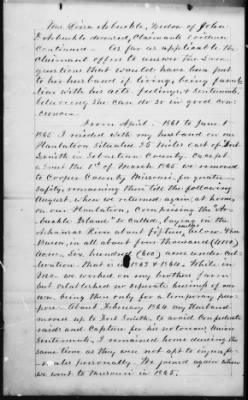 Mrs Eliza Arbuckle, Widow of John
D Arbuckle deceased, Claimants evidence
continued — As far as applicable the
Claimant offers to answer the Ques-
questions that would have been put
to her husband if living, being fami-
liar with his acts, feelings & sentiments,
believing she can do so in good con-
science.
From April 1861 to June 1
1865 I resided with my husband on our
Plantation situated 25 miles east of Fort
Smith in Sebastian County. Except
about the 1st of March 1865 we removed
to Cooper County Missouri for greater
safety, remaining there till the following
August, when we returned again, at home,
on our Plantation, Comprising the "Ar-
buckle Island" so called, laying in the
Arkansas River about fifteen miles below Van
Buren, in all about four thousand (4000)
acres, six hundred (600) acres under cul-
tivation that is 1863 & 1864. While in
Mo. we worked on my brothers farm
but established no separate business of our
own, being there only for a temporary pur-
pose. About February 1864 my Husband
moved up to Fort Smith, to avoid Confederate
raids and Capture for his notorious Union
Sentiments, I remained home during the
same time as they were not apt to injure
females personally. We joined again when
we went to Missouri in 1865.